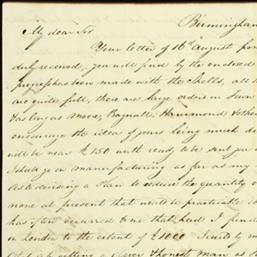 Birmingham
My dear Sir
Your letter of 16th August
duly received, you will find by the enclosed
progress has been made with the Shells, all
are quite full, there are large orders in
as More, Bagnall, Hammond
encourage the idea of yours being much
will be near £150 worth ready to be sent
I shall go on manufacturing as far as my
As to devising a plan to reduce the quantity
none at present that would be practicable
has often occurred to me that had I
in London to the extent of £1000
a clever & honest man